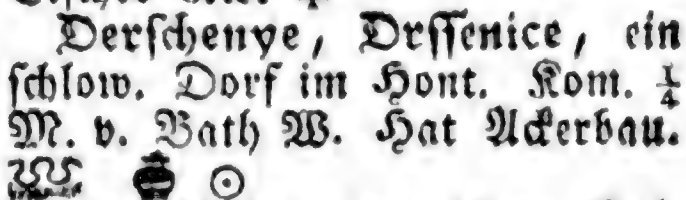 Derſchenye, Drſſenice, ein
ſchlow. Dorf im Hont. Kom. ¼
M. v. Bath W. Hat Ackerbau.